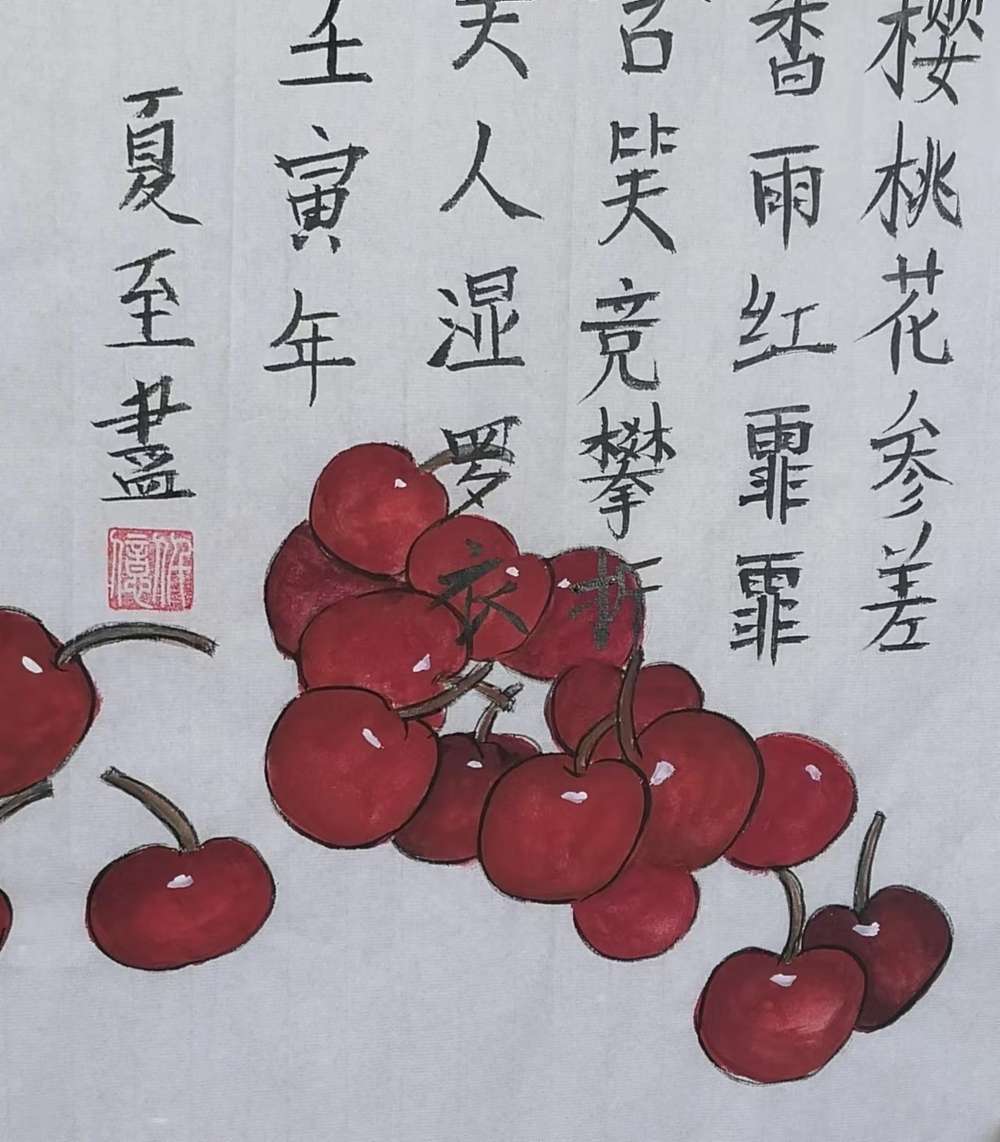 樱桃花参差
香雨红霏霏
含笑竞攀折
美人湿罗衣
壬寅年
夏至畫